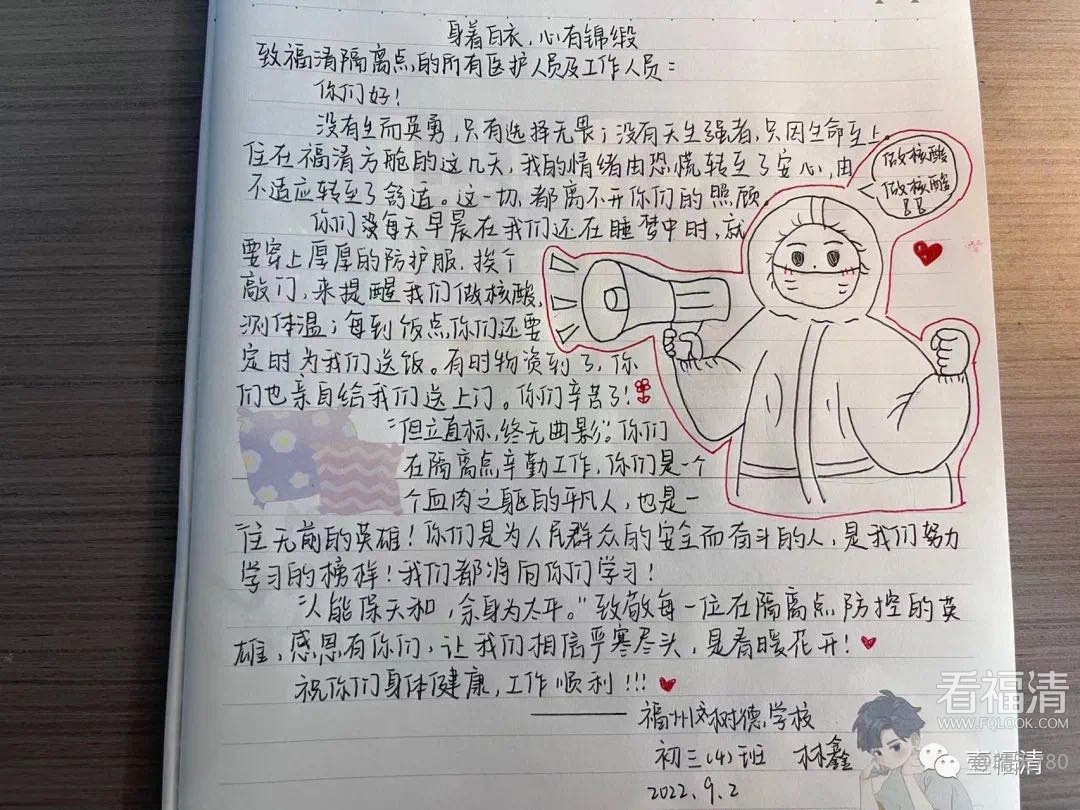 身着白衣，心有锦缎
致福清隔离点的所有医护人员及工作人员：
你们好！
没有生而英勇，只有选择无畏；没有天生强者，只因生命至上。
住在福清方舱的这几天，我的情绪由恐慌转至了安心，由
不适应转至了舒适。这一切，都离不开你们的照顾。
你们每天早晨在我们还在睡梦中时，就
要穿上厚厚的防护服，挨个
敲门，来提醒我们做核酸，
测体温；每到饭点你们还要
定时为我们送饭。有时物资到了，你
们也亲自给我们送上门。你们辛苦了！
“但立直标，终无曲影”。你们
在隔离点辛勤工作，你们是一个
个血肉之躯的平凡人，也是一
往无前的英雄！你们是为人民群众的安全而奋斗的人，是我们努力
学习的榜样！我们都将向你们学习！
“人能保天和，余身为太平。”致敬每一位在隔离点防控的英
雄，感恩有你们，让我们相信严寒尽头，是春暖花开！
祝你们身体健康，工作顺利！！！
——— 福州树德学校
初三（4）班 林鑫
2022.9.2
做核酸
做核酸
!!
看福清
WWW.FQLOOK.COM
壹福清
80